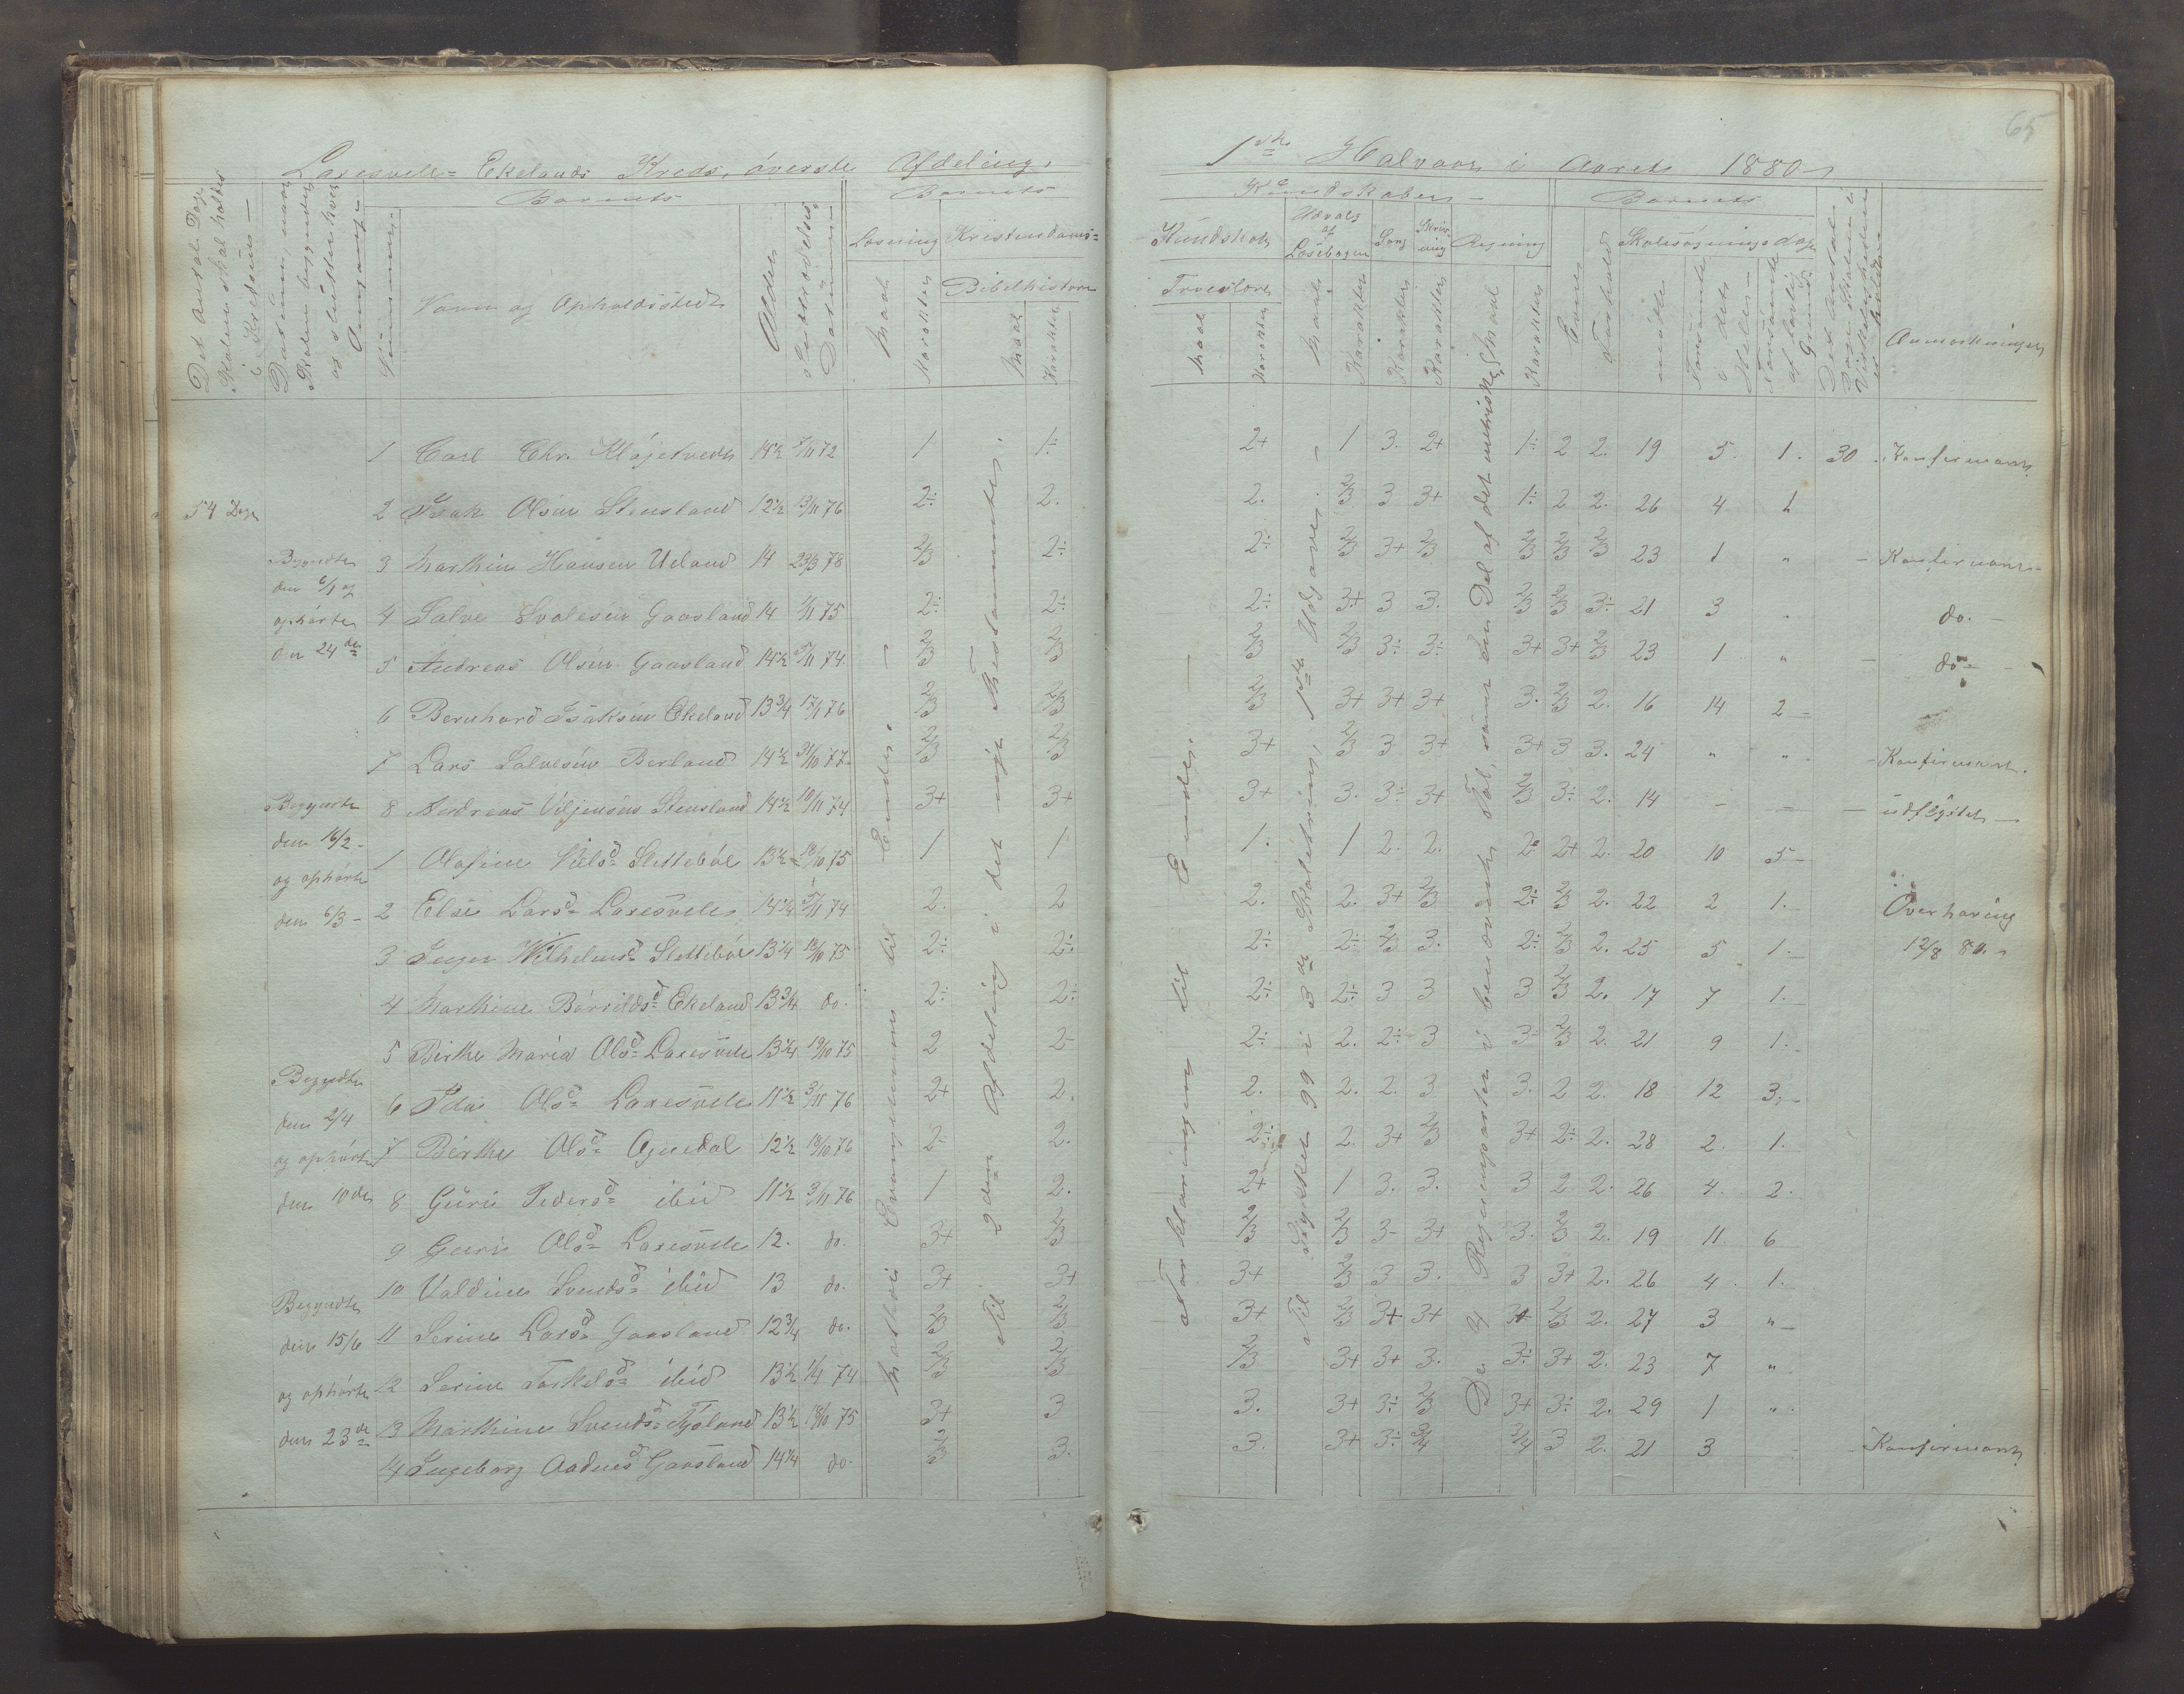 65
Laxesvele= Ekelands Kreds, överste Afdeling.
1ste Halvaar i Aaret 1880
Det Antal Dage Skolen skal holdes i Kredsen
Datum, naar Skolen begyndes og sluttes hver Omgang
Barnets
Nummer
Navn og Opholdssted
Alder
Indtrædelses Datum
Barnets
Læsning
Maal
Karakter
Kristendoms=
Bibelhistorie
Maal
Karakter
Kundskaber
Kundskab
Troeslære
Maal
Karakter
Udvalg af Læsebogen
Maal
Karakter
Sang
Karakter
Skrivning
Karakter
Regning
Maal
Karakter
Barnets
Evner
Forhold
Skolesøgningsdage
mødte
forsømte i det Hele
forsømte af lovlig Grund
Det Antal Dage Skolen i Virkeligheden er holdt
Anmærkninger
54 Dage
Begyndte den 6/1 og ophørte den 24de
Begyndte den 16/2 og ophørte den 6/3
Begyndte den 2/4 og ophørte den 10de
Begyndte den 15/6 og ophørte den 23de
Mattæi Evangelium til Ende.
Til 2den Afdeling i det nye Testamente.
Forklaringen til Ende.
Til Stykket 99 i 3de Skoletrin, 1ste Udgave.
De 4 Regningsarter i benævnte Tal, samt en Del af det metriske
1 Carl Chr. Kløjetvedt 14½ 7/11 72 1 1÷ 2+ 1 3. 2+ 1÷ 2 2. 19 5. 1. 30. Konfirmant
2 Isak Olsen Stensland 12½ 13/11 76 2÷ 2. 2. 2/3 3 3+ 1÷ 2 2. 26 4 1
3 Marthin Hansen Ueland 14 23/3 78 2/3 2÷ 2÷ 2/3 3+ 2/3 2/3 2/3 2/3 23 1 " Konfirmant
4 Salve Svalesen Gaasland 14 1/11 75 2÷ 2÷ 2÷ 3+ 3 3. 2/3 2/3 3÷ 21 3 do.
5 Andreas Olsen Gaasland 14½ 5/11 74 2/3 2/3 2/3 2/3 3÷ 3÷ 3+ 3+ 2/3 23 1 " do
6 Bernhard Isaksen Ekeland 13¾ 17/1 76 2/3 2/3 2/3 3+ 3+ 3+ 3. 2/3 2. 16 14 2
7 Lars Salvesen Berland 14½ 31/10 77 2/3 2/3 3+ 2/3 3 3+ 3+ 3 3. 24 " " Konfirmant.
8 Andreas Viljemsen Stensland 14½ 10/11 74 3+ 3+ 3+ 3. 3÷ 3+ 2/3 3÷ 2. 14 – – udflyttet
1 Olafine Nielsd Slettebøe 13½ 18/10 75 1 1 1. 1 2. 2. 2. 2+ 2. 20 10 5
2 Else Larsd Laxesvele 14¼ 5/11 74 2. 2 2. 2. 3+ 2/3 2÷ 2/3 2. 22 2 1. Overhøring
3 Inger Wilhelmsd Slettebøe 13¼ 18/10 75 2÷ 2÷ 2÷ 2÷ 2/3 3. 2÷ 2/3 2. 25 5 1. 12/8 80.
4 Marthine Börrildsd Ekeland 13¾ do. 2÷ 2÷ 2÷ 2÷ 3 3 3 2/3 2. 17 7 1.
5 Birthe Maria Olsd Laxesvele 13¼ 19/10 75 2 2 2÷ 2. 2÷ 3 3÷ 2/3 2. 21 9 1.
6 Ida Olsd Laxesvele 11½ 3/11 76 2+ 2. 2. 2. 2. 3 3. 2 2. 18 12 3.
7 Berthe Olsd Ognedal 12½ 18/10 76 2÷ 2. 2÷ 2. 3+ 2/3 3+ 2÷ 2. 28 2. 1.
8 Guri Pedersd ibid 11½ 3/11 76 1 2. 2+ 1 3. 3. 3 2 2. 26 4. 2.
9 Guri Olsd Laxesvele 12. do. 3+ 2/3 2/3 2/3 3- 3+ 3. 2/3 2. 19 11. 6
10 Valdine Svendsd ibid 13 do. 3+ 3+ 3+ 2/3 3 3. 3 3+ 2. 26 4. 1.
11 Serine Larsd Gaasland 12¾ do. 2/3 2/3 3+ 2/3 3+ 3+ 3+ 2/3 2. 27 3 "
12 Serine Torkelsd ibid 13½ 1/4 74 2/3 2/3 2/3 3+ 3+ 3. 3÷ 3+ 2. 23 7 "
13 Marthine Svendsd 13½ 18/10 75 3+ 3 3. 3+ 3÷ 2/3 3+ 3÷ 2. 29 1 "
14 Ingeborg Aadnesd Gaasland 14¼ do. 2/3 3. 3. 3+ 3÷ 3/4 3/4 3 2. 21 3 Konfirmant